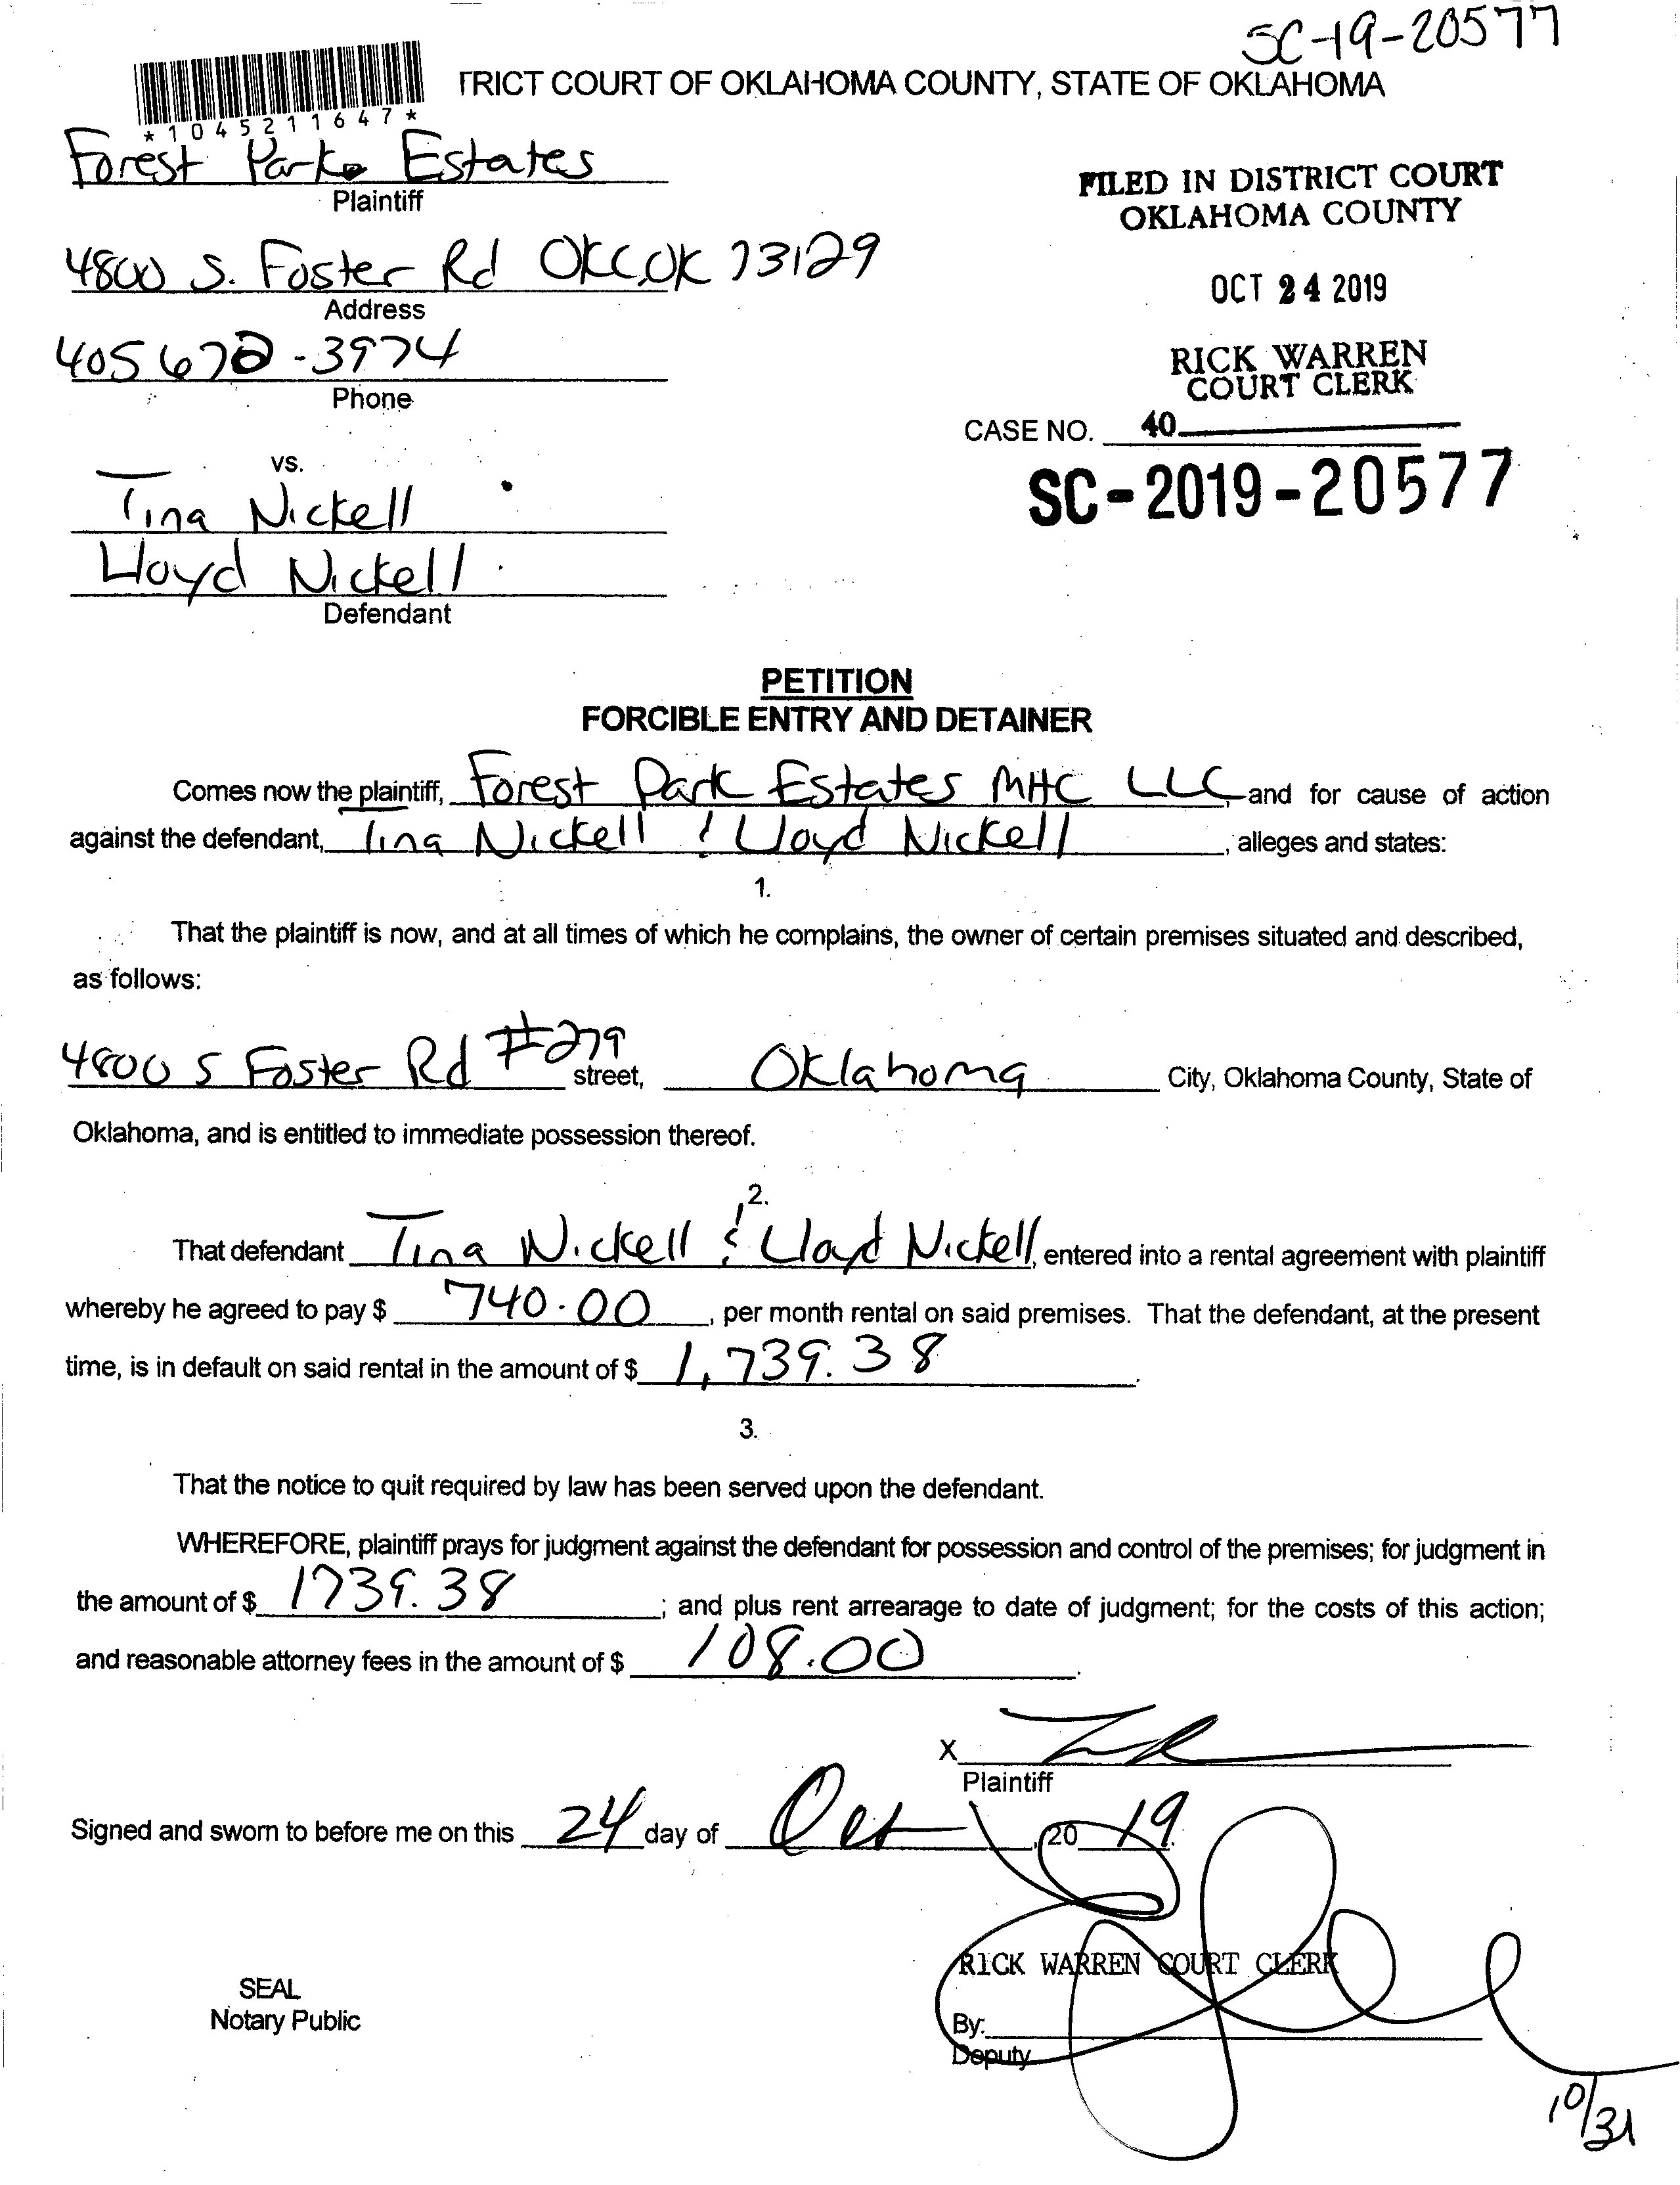 SC-19-20577
TRICT COURT OF OKLAHOMA COUNTY, STATE OF OKLAHOMA
*1045211647*
Forest Park Estates
Plaintiff
FILED IN DISTRICT COURT
OKLAHOMA COUNTY
4800 S. Foster Rd OKC, OK 73129
Address
OCT 24 2019
405 672-3974
Phone
RICK WARREN
COURT CLERK
CASE NO. 40
SC-2019-20577
vs.
Tina Nickell
Lloyd Nickell
Defendant
PETITION
FORCIBLE ENTRY AND DETAINER
Comes now the plaintiff, Forest Park Estates MHC LLC, and for cause of action
against the defendant, Tina Nickell & Lloyd Nickell, alleges and states:
1.
That the plaintiff is now, and at all times of which he complains, the owner of certain premises situated and described,
as follows:
4800 S Foster Rd #279 street, Oklahoma City, Oklahoma County, State of
Oklahoma, and is entitled to immediate possession thereof.
2.
That defendant Tina Nickell & Lloyd Nickell, entered into a rental agreement with plaintiff
whereby he agreed to pay $ 740.00, per month rental on said premises. That the defendant, at the present
time, is in default on said rental in the amount of $ 1,739.38.
3.
That the notice to quit required by law has been served upon the defendant.
WHEREFORE, plaintiff prays for judgment against the defendant for possession and control of the premises; for judgment in
the amount of $ 1739.38; and plus rent arrearage to date of judgment; for the costs of this action;
and reasonable attorney fees in the amount of $ 108.00.
X
Plaintiff
Signed and sworn to before me on this 24 day of Oct, 20 19.
RICK WARREN COURT CLERK
SEAL
Notary Public
By:
Deputy
10/31